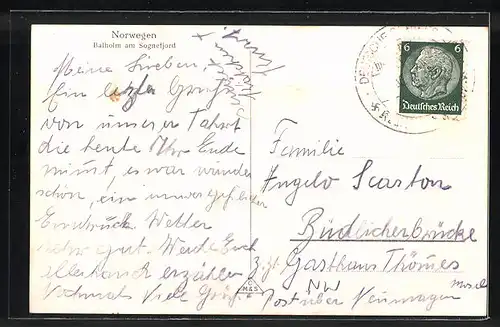 Norwegen
Balholm am Sognefjord
Meine Lieben,
Ein letzter Gruß
von unserer Fahrt
die heute Ihr Ende
nimmt, es war wunder
schön, ein unvergeßlicher
Eindruck. Wetter
sehr gut. Werde Euch
allerhand erzählen
Nochmals Viele Grüße
Familie
Angelo Scarton
Büdlicherbrücke
z. Zt. Gasthaus Thömes
Post über Neumagen
Mosel
NW
6 6
Deutsches Reich
DEUTSCHE
M&S